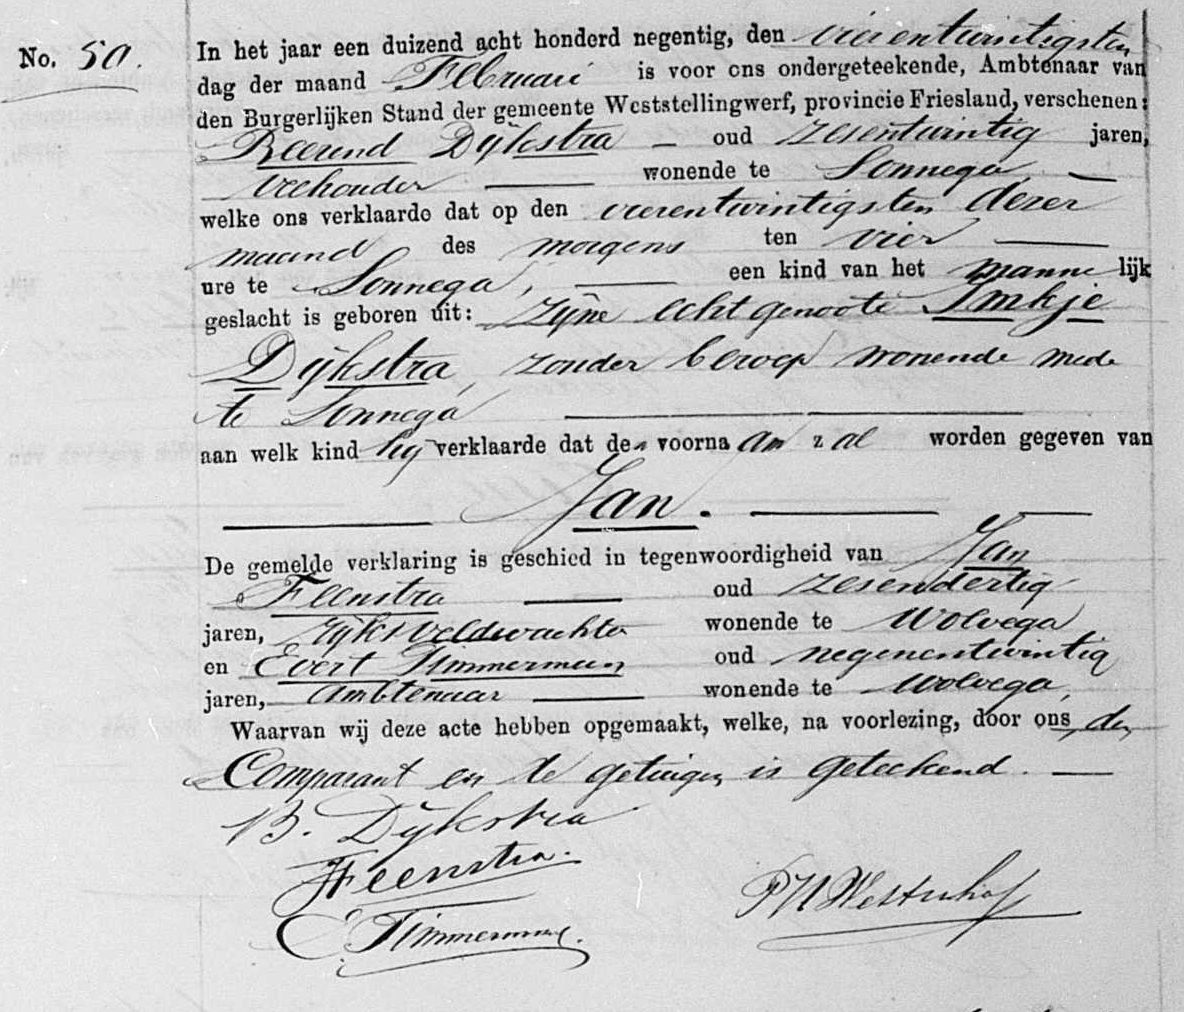 No. 50.
In het jaar een duizend acht honderd negentig, den vierentwintigsten
dag der maand Februari is voor ons ondergeteekende, Ambtenaar van
den Burgerlijken Stand der gemeente Weststellingwerf, provincie Friesland, verschenen:
Beerend Dijkstra — oud zesentwintig jaren,
Veehouder — wonende te Sonnega, —
welke ons verklaarde dat op den vierentwintigsten dezer
maand des morgens ten vier —
ure te Sonnega, — een kind van het mannelijk
geslacht is geboren uit: zijne echtgenoote Imkje
Dijkstra, zonder beroep wonende mede
te Sonnega —
aan welk kind hij verklaarde dat den voornaam zal worden gegeven van
— Jan. —
De gemelde verklaring is geschied in tegenwoordigheid van Jan
Feenstra — oud zesendertig
jaren, Rijksveldwachter wonende te Wolvega
en Evert Timmerman oud negenentwintig
jaren, Ambtenaar — wonende te Wolvega,
Waarvan wij deze acte hebben opgemaakt, welke, na voorlezing, door ons, den
Comparant en de getuigen is geteekend. —
B. Dijkstra
JFeenstra.
E Timmerman.
PHWesterhof